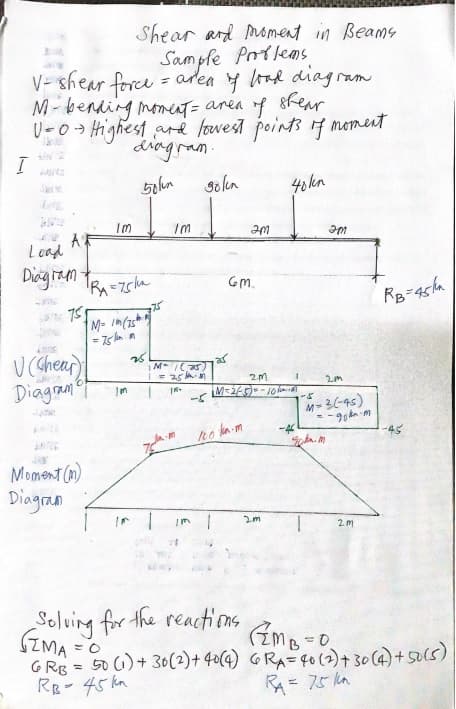 Shear and Moment in Beams
Sample Problems
V- shear force = area of load diagram
M - bending moment = area of shear
V=0 → Highest and lowest points of moment
diagram.
I
50kn 30kn 40kn
1m 1m 2m 2m
Load A
Diagram RA=75kn 6m. RB=45kn
75 75
M= 1m(75kn)
= 75kn-m
V (Shear) 25 M= 1(25) 25
= 25kn-m 2m 2m
Diagram 0 1m 1m -5 M=2(-5)=-10kn-m -5 M=2(-45)
= -90kn-m
-45 -45
75kn-m 100 kn-m 90kn-m
Moment (m)
Diagram
1m 1m 2m 2m
Solving for the reactions
ΣMA = 0 ΣMB = 0
6RB = 50(1)+30(2)+40(4) 6RA=40(2)+30(4)+50(5)
RB= 45kn RA= 75kn